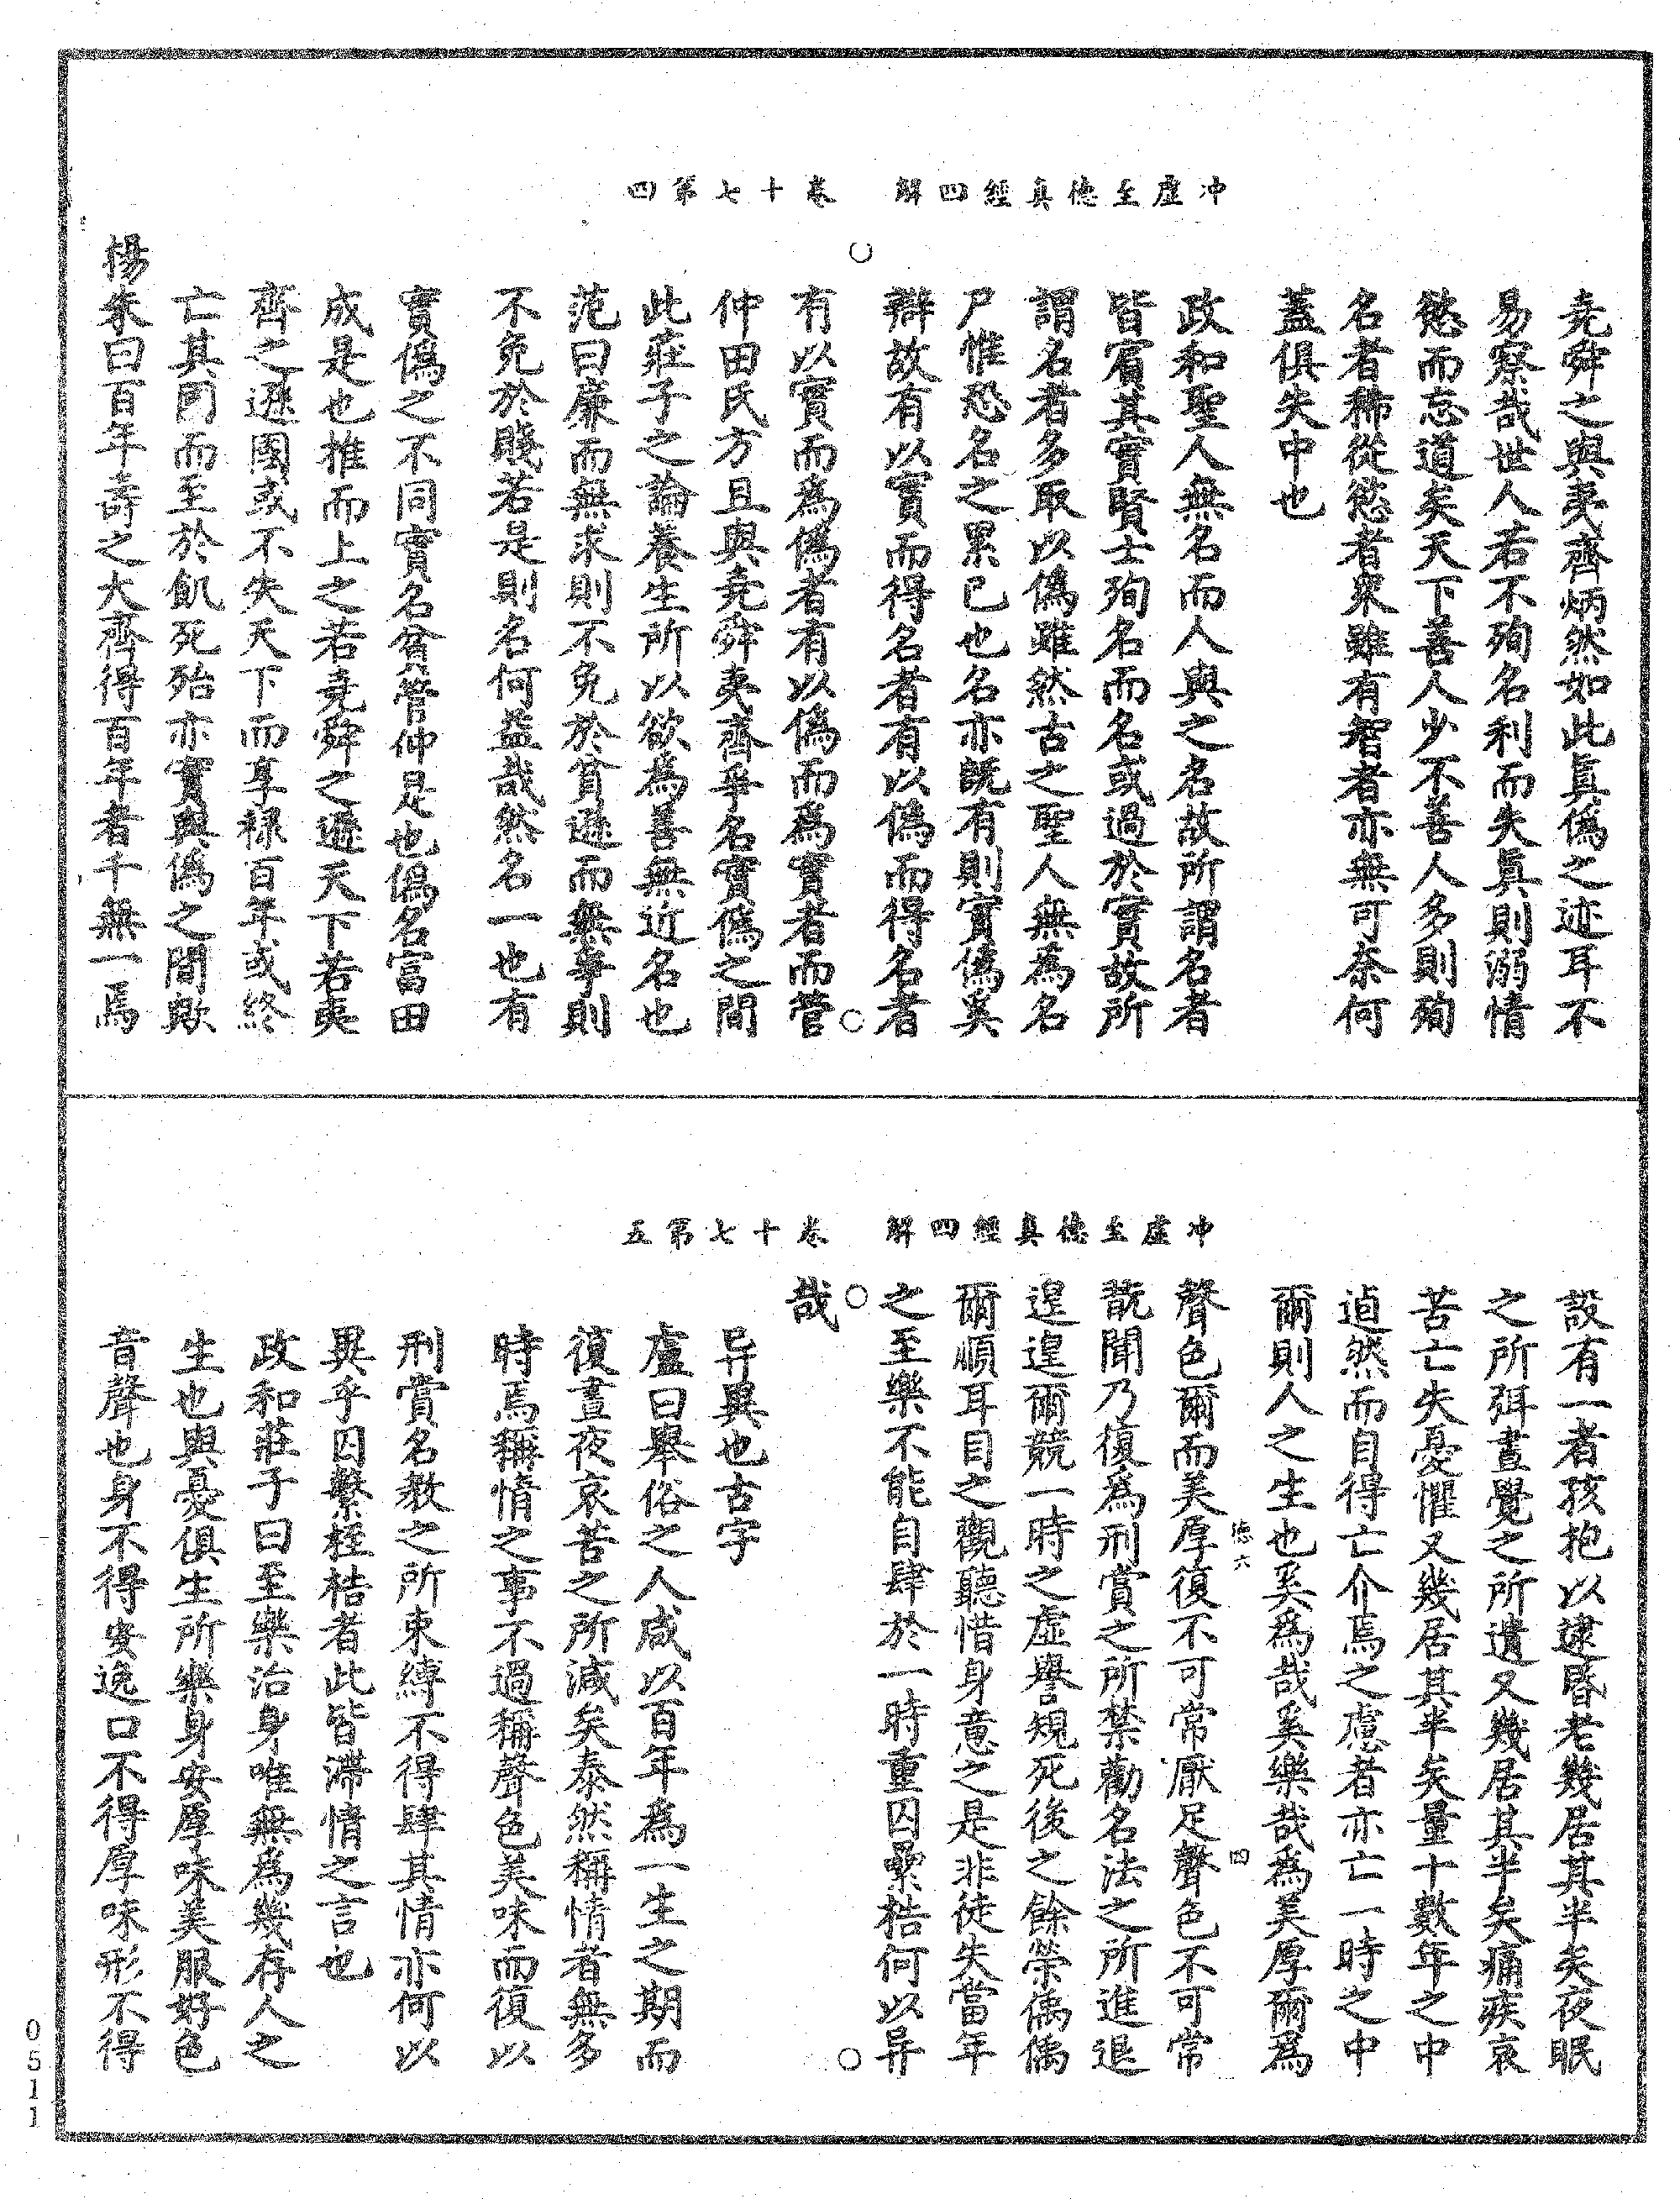 冲虛至德真經四解　卷十七第四
堯舜之與夷齊炳然如此真偽之迹耳不
易察哉世人若不殉名利而失真則溺情
慾而忘道矣天下善人少不善人多則殉
名者稀從慾者衆雖有智者亦無可奈何
蓋俱失中也
政和聖人無名而人與之名故所謂名者
皆賓其實賢士殉名而名或過於實故所
謂名者多取以偽雖然古之聖人無為名
尸惟恐名之累已也名亦既有則實偽奚
辯故有以實而得名者有以偽而得名者
有以實而為偽者有以偽而為實者而管
仲田氏方且與堯舜夷齊爭名實偽之間
此莊子之論養生所以欲為善無近名也
范曰廉而無求則不免於貧遜而無爭則
不免於賤若是則名何益哉然名一也有
實偽之不同實名貧管仲是也偽名富田
成是也推而上之若堯舜之遜天下若夷
齊之遜國或不失天下而享祿百年或終
亡其國而至於飢死殆亦實與偽之間歟
楊朱曰百年壽之大齊得百年者千無一焉
冲虛至德真經四解　卷十七第五
設有一者孩抱以逮昏老幾居其半矣夜眠
之所弭晝覺之所遺又幾居其半矣痛疾哀
苦亡失憂懼又幾居其半矣量十數年之中
逌然而自得亡介焉之慮者亦亡一時之中
爾則人之生也奚為哉奚樂哉為美厚爾為
聲色爾而美厚復不可常厭足聲色不可常
翫聞乃復為刑賞之所禁勸名法之所進退
遑遑爾競一時之虛譽規死後之餘榮偊偊
爾順耳目之觀聽惜身意之是非徒失當年
之至樂不能自肆於一時重囚纍梏何以异
哉
异異也古字
盧曰舉俗之人咸以百年為一生之期而
復晝夜哀苦之所減矣泰然稱情者無多
時焉稱情之事不過稱聲色美味而復以
刑賞名教之所束縛不得肆其情亦何以
異乎囚繫桎梏者此皆滯情之言也
政和莊子曰至樂治身唯無為幾存人之
生也與憂俱生所樂身安厚味美服好色
音聲也身不得安逸口不得厚味形不得
德六
四
0511